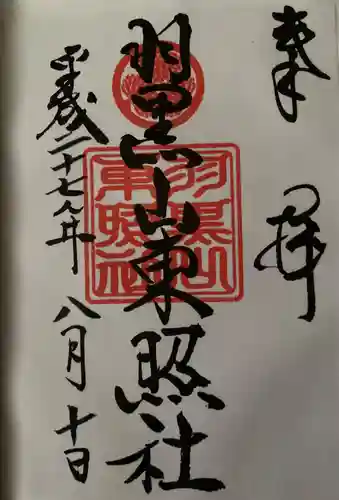 奉拝
羽黒山東照社
羽黒山東照社
平成二十七年
八月十日